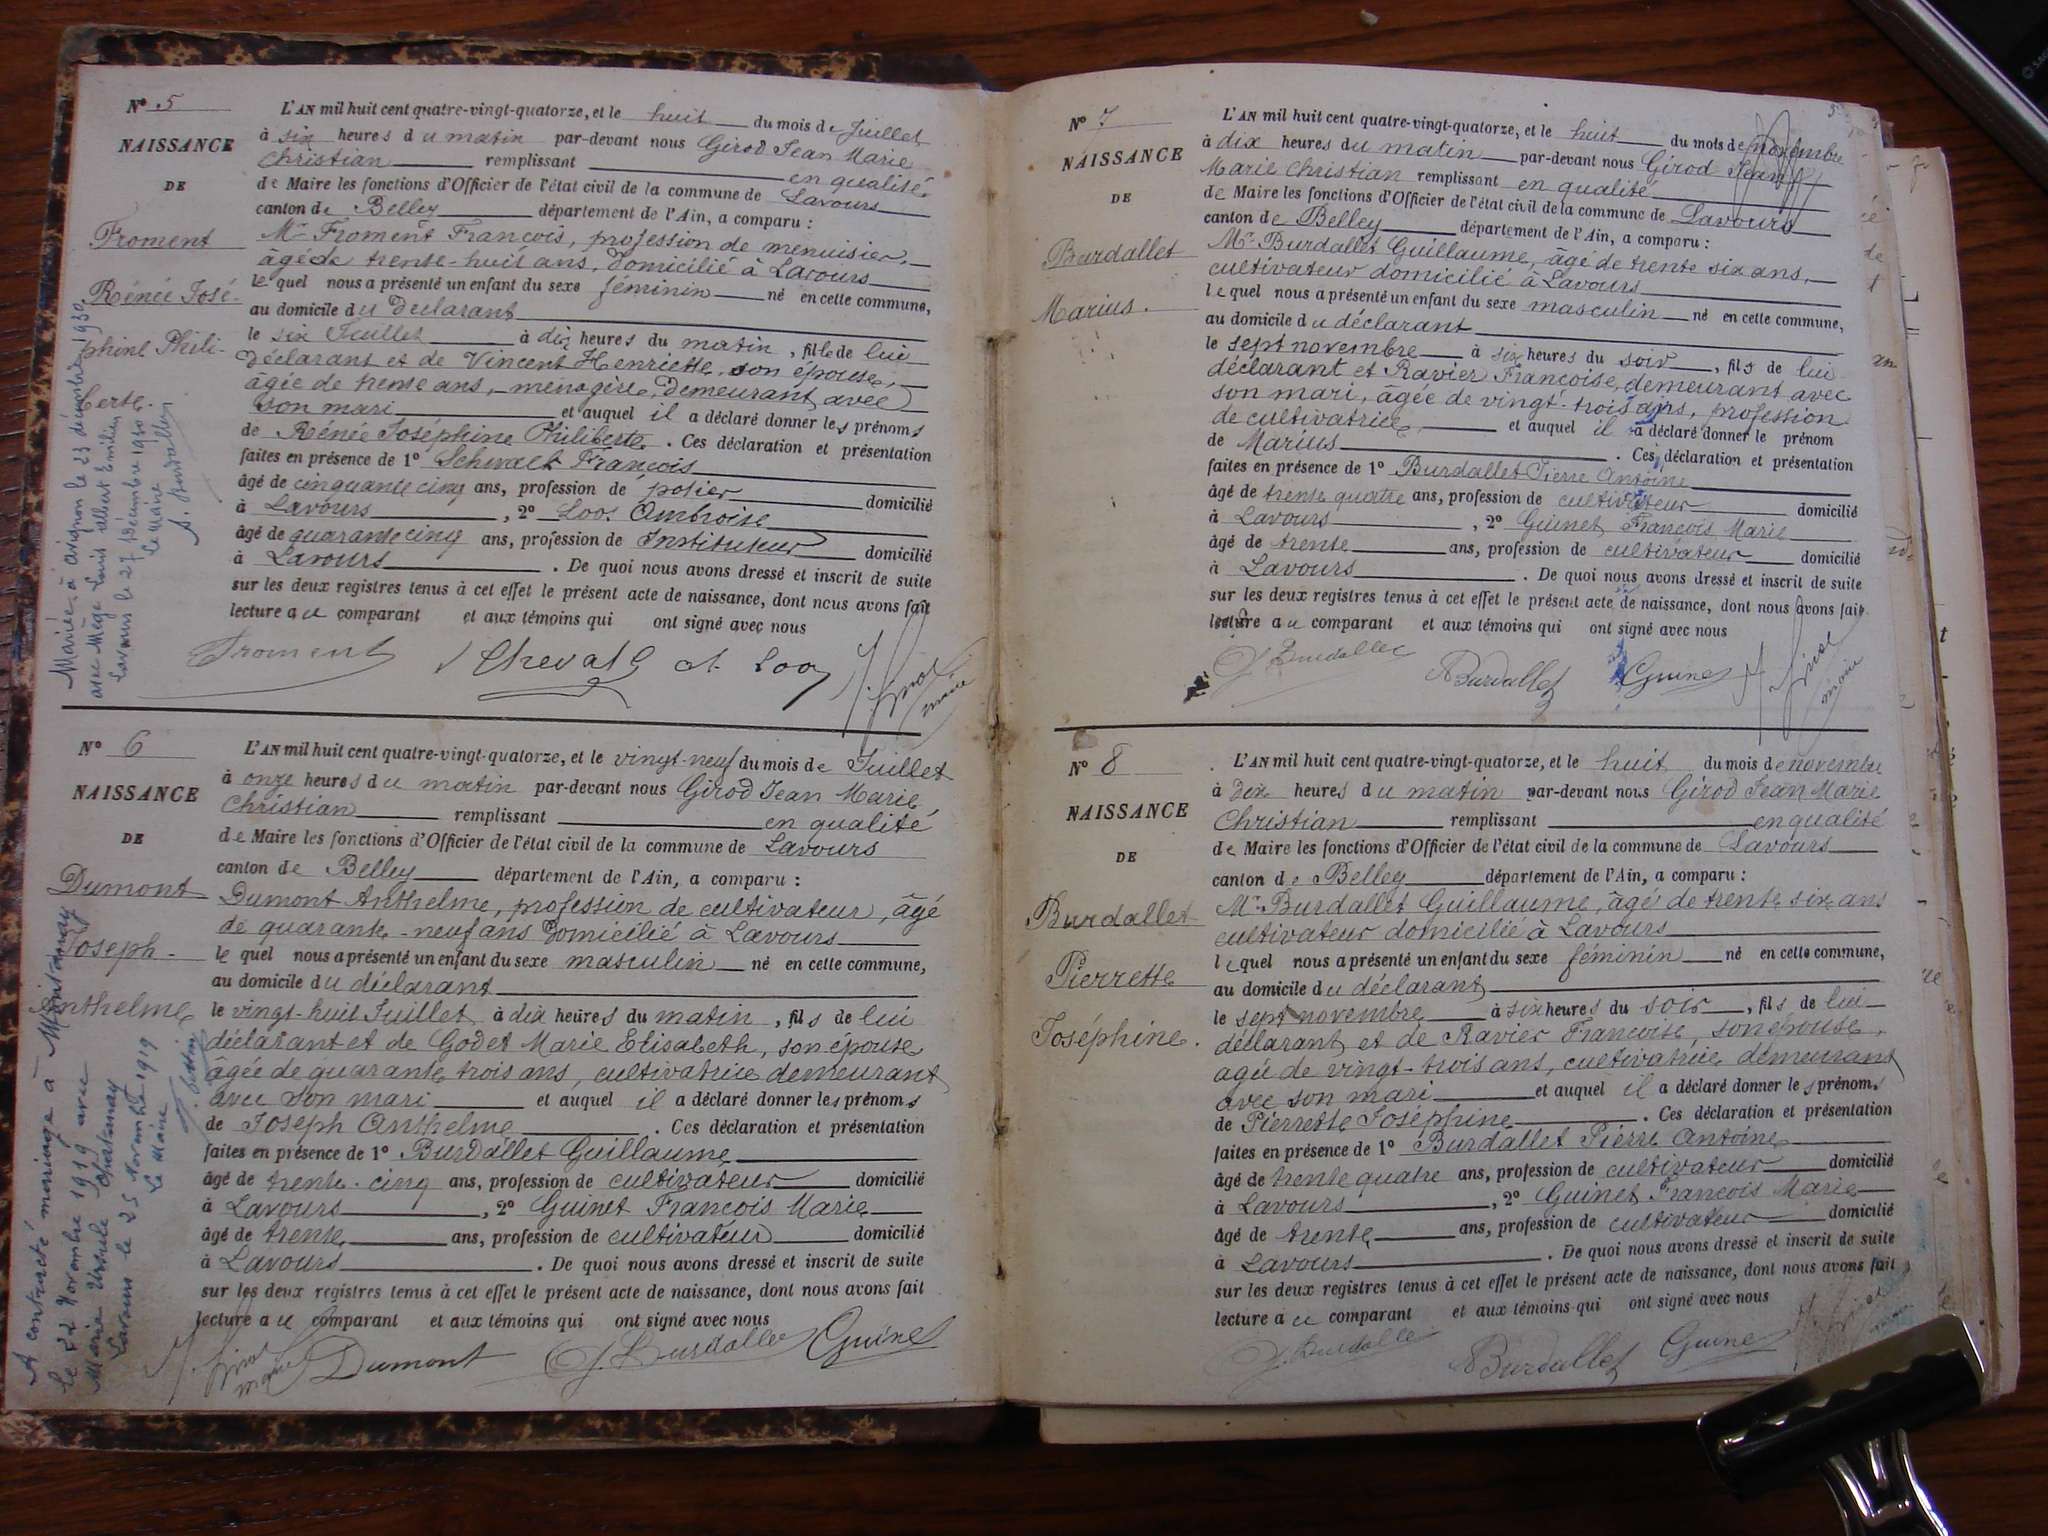 N° 5
NAISSANCE
DE
Froment
Rénée José-
phine Phili-
berte.
L'AN mil huit cent quatre-vingt-quatorze, et le huit du mois de Juillet
à six heures du matin par-devant nous Girod Jean Marie
Christian remplissant en qualité
de Maire les fonctions d'Officier de l'état civil de la commune de Lavours
canton de Belley département de l'Ain, a comparu :
Mr Froment François, profession de menuisier,
âgé de trente-huit ans, domicilié à Lavours
lequel nous a présenté un enfant du sexe féminin né en cette commune,
au domicile du déclarant
le six Juillet à dix heures du matin, fille de lui
déclarant et de Vincent Henriette, son épouse,
âgée de trente ans, ménagère, demeurant avec
son mari et auquel il a déclaré donner les prénoms
de Rénée Joséphine Philiberte. Ces déclaration et présentation
faites en présence de 1° Schwalt François
âgé de cinquante cinq ans, profession de potier domicilié
à Lavours, 2° Loos Ambroise
âgé de quarante cinq ans, profession de Instituteur domicilié
à Lavours. De quoi nous avons dressé et inscrit de suite
sur les deux registres tenus à cet effet le présent acte de naissance, dont nous avons fait
lecture au comparant et aux témoins qui ont signé avec nous
Froment A. Loos Girod
maire
Mariée à Avignon le 23 décembre 1930
avec Mège Louis Albert Emilien
Lavours le 27 décembre 1930
Le Maire
N° 6
NAISSANCE
DE
Dumont
Joseph-
Anthelme
L'AN mil huit cent quatre-vingt-quatorze, et le vingt-neuf du mois de Juillet
à onze heures du matin par-devant nous Girod Jean Marie
Christian remplissant en qualité
de Maire les fonctions d'Officier de l'état civil de la commune de Lavours
canton de Belley département de l'Ain, a comparu :
Dumont Anthelme, profession de cultivateur, âgé
de quarante-neuf ans domicilié à Lavours
lequel nous a présenté un enfant du sexe masculin né en cette commune,
au domicile du déclarant
le vingt-huit Juillet à dix heures du matin, fils de lui
déclarant et de Godet Marie Elisabeth, son épouse
âgée de quarante trois ans, cultivatrice demeurant
avec son mari et auquel il a déclaré donner les prénoms
de Joseph Anthelme. Ces déclaration et présentation
faites en présence de 1° Burdallet Guillaume
âgé de trente-cinq ans, profession de cultivateur domicilié
à Lavours, 2° Guinet François Marie
âgé de trente ans, profession de cultivateur domicilié
à Lavours. De quoi nous avons dressé et inscrit de suite
sur les deux registres tenus à cet effet le présent acte de naissance, dont nous avons fait
lecture au comparant et aux témoins qui ont signé avec nous
Girod
maire Dumont G Burdallet Guinet
A contracté mariage à
le 22 Novembre 1919 avec
Marie Ursule
Lavours le 25 Novembre 1919
Le Maire
N° 7
NAISSANCE
DE
Burdallet
Marius.
L'AN mil huit cent quatre-vingt-quatorze, et le huit du mois de novembre
à dix heures du matin par-devant nous Girod Jean
Marie Christian remplissant en qualité
de Maire les fonctions d'Officier de l'état civil de la commune de Lavours
canton de Belley département de l'Ain, a comparu :
Mr Burdallet Guillaume, âgé de trente six ans,
cultivateur domicilié à Lavours
lequel nous a présenté un enfant du sexe masculin né en cette commune,
au domicile du déclarant
le sept novembre à six heures du soir, fils de lui
déclarant et Ravier Françoise, demeurant avec
son mari, âgée de vingt-trois ans, profession
de cultivatrice, et auquel il a déclaré donner le prénom
de Marius. Ces déclaration et présentation
faites en présence de 1° Burdallet Pierre Antoine
âgé de trente quatre ans, profession de cultivateur domicilié
à Lavours, 2° Guinet François Marie
âgé de trente ans, profession de cultivateur domicilié
à Lavours. De quoi nous avons dressé et inscrit de suite
sur les deux registres tenus à cet effet le présent acte de naissance, dont nous avons fait
lecture au comparant et aux témoins qui ont signé avec nous
G Burdallet Burdallet Guinet Girod
maire
N° 8
NAISSANCE
DE
Burdallet
Pierrette
Joséphine.
L'AN mil huit cent quatre-vingt-quatorze, et le huit du mois de novembre
à dix heures du matin par-devant nous Girod Jean Marie
Christian remplissant en qualité
de Maire les fonctions d'Officier de l'état civil de la commune de Lavours
canton de Belley département de l'Ain, a comparu :
Mr Burdallet Guillaume, âgé de trente six ans
cultivateur domicilié à Lavours
lequel nous a présenté un enfant du sexe féminin né en cette commune,
au domicile du déclarant
le sept novembre à six heures du soir, fils de lui
déclarant et de Ravier Françoise, son épouse,
agée de vingt-trois ans, cultivatrice demeurant
avec son mari et auquel il a déclaré donner les prénoms
de Pierrette Joséphine. Ces déclaration et présentation
faites en présence de 1° Burdallet Pierre Antoine
âgé de trente quatre ans, profession de cultivateur domicilié
à Lavours, 2° Guinet François Marie
âgé de trente ans, profession de cultivateur domicilié
à Lavours. De quoi nous avons dressé et inscrit de suite
sur les deux registres tenus à cet effet le présent acte de naissance, dont nous avons fait
lecture au comparant et aux témoins qui ont signé avec nous
G Burdallet Burdallet Guinet